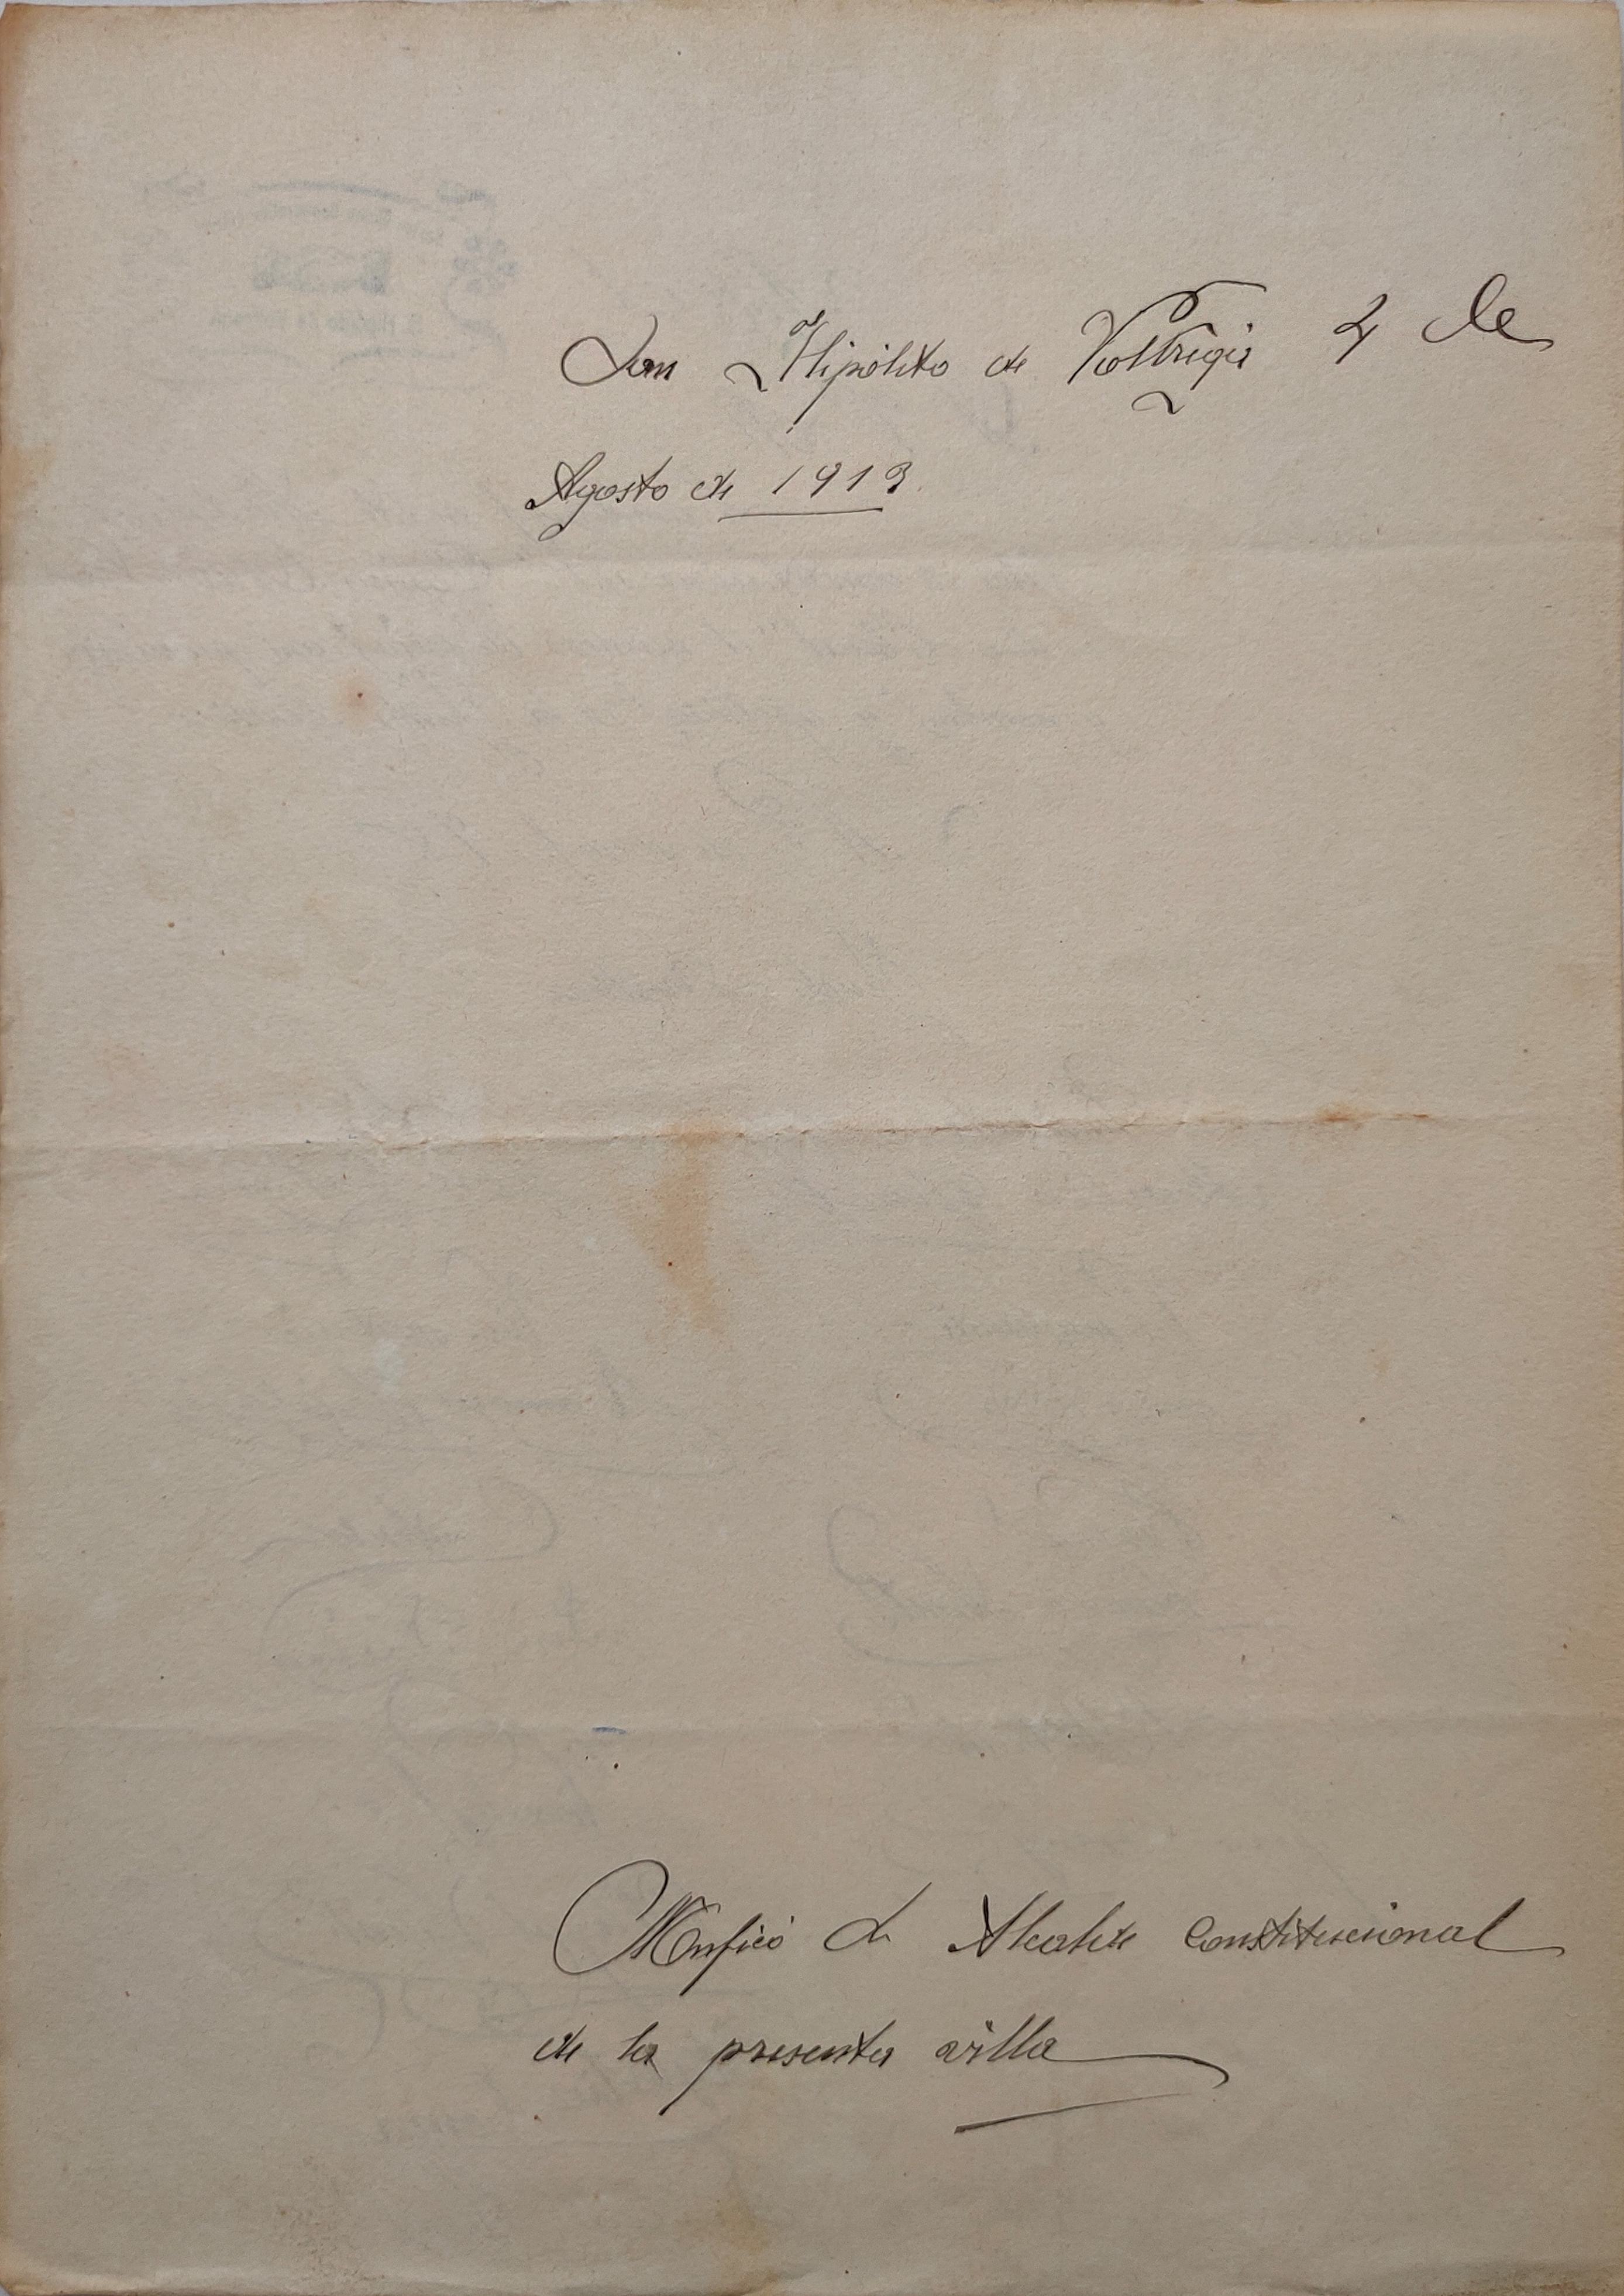 San Hipólito de Voltregá 4 de
Agosto de 1913.
Alcalde Constitucional
de la presente villa